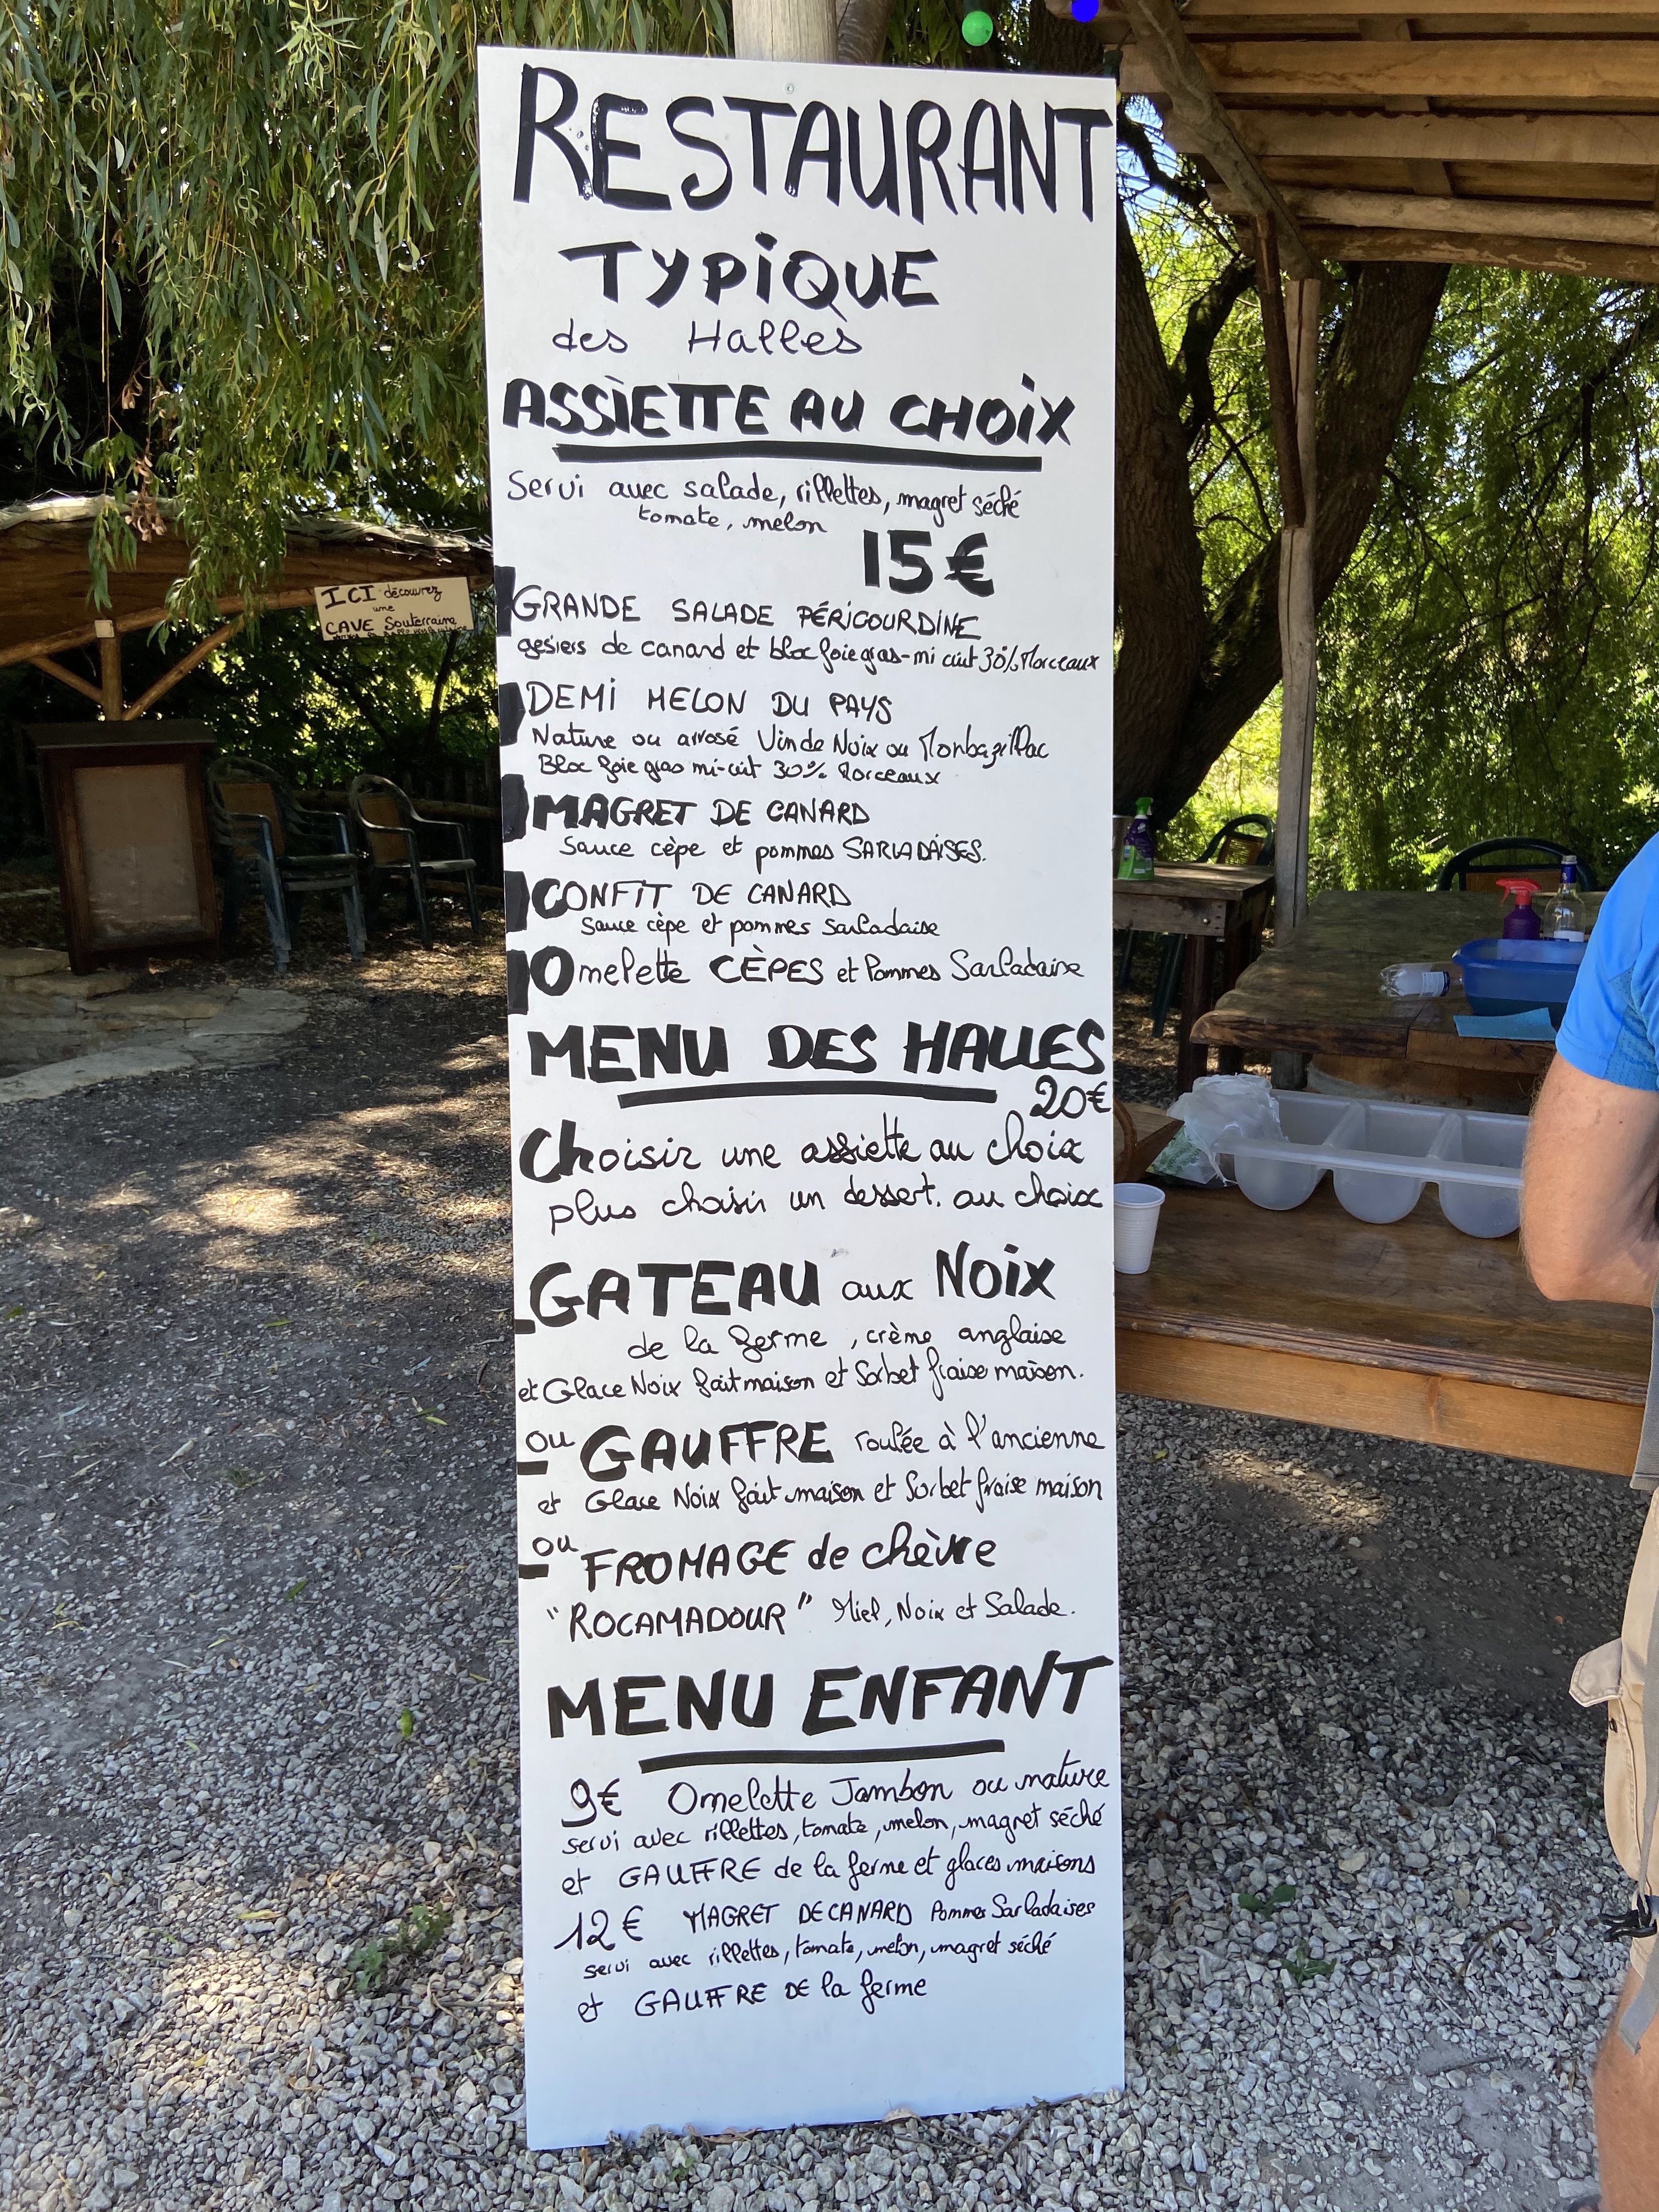 RESTAURANT
TYPIQUE
des Halles
ASSIETTE AU CHOIX
Servi avec salade, rillettes, magret séché
tomate, melon
15€
GRANDE SALADE PÉRIGOURDINE
gesiers de canard et bloc foie gras-mi cuit 30% Morceaux
DEMI MELON DU PAYS
Nature ou arrosé Vin de Noix ou Monbazillac
Bloc foie gras mi-cuit 30% Morceaux
MAGRET DE CANARD
Sauce cèpe et pommes SARLADAISES.
CONFIT DE CANARD
Sauce cèpe et pommes Sarladaise
Omelette CÈPES et Pommes Sarladaise
MENU DES HALLES
20€
Choisir une assiette au choix
plus choisir un dessert. au choix
GATEAU aux NOIX
de la ferme, crème anglaise
et Glace Noix fait maison et Sorbet fraise maison.
ou GAUFFRE roulée à l'ancienne
et Glace Noix fait maison et Sorbet fraise maison
ou FROMAGE de chèvre
"ROCAMADOUR" Miel, Noix et Salade.
MENU ENFANT
9€ Omelette Jambon ou nature
servi avec rillettes, tomate, melon, magret séché
et GAUFFRE de la ferme et glaces maisons
12€ MAGRET DE CANARD Pommes Sarladaises
servi avec rillettes, tomate, melon, magret séché
et GAUFFRE DE la ferme
ICI découvrez
une
CAVE Souterraine